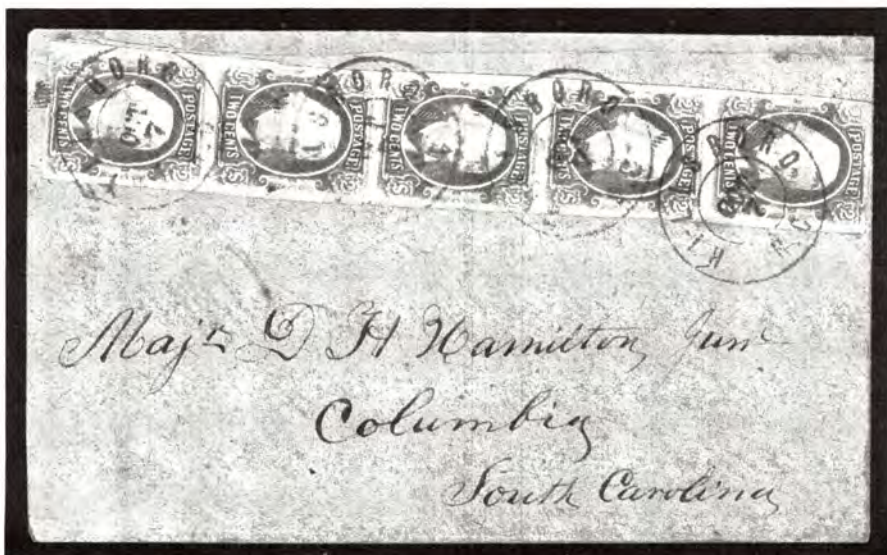 TWO CENTS POSTAGE
TWO CENTS POSTAGE
TWO CENTS POSTAGE
TWO CENTS POSTAGE
TWO CENTS POSTAGE
BORO
BORO
BORO
BORO N.C
Majr D H Hamilton Junr
Columbia
South Carolina